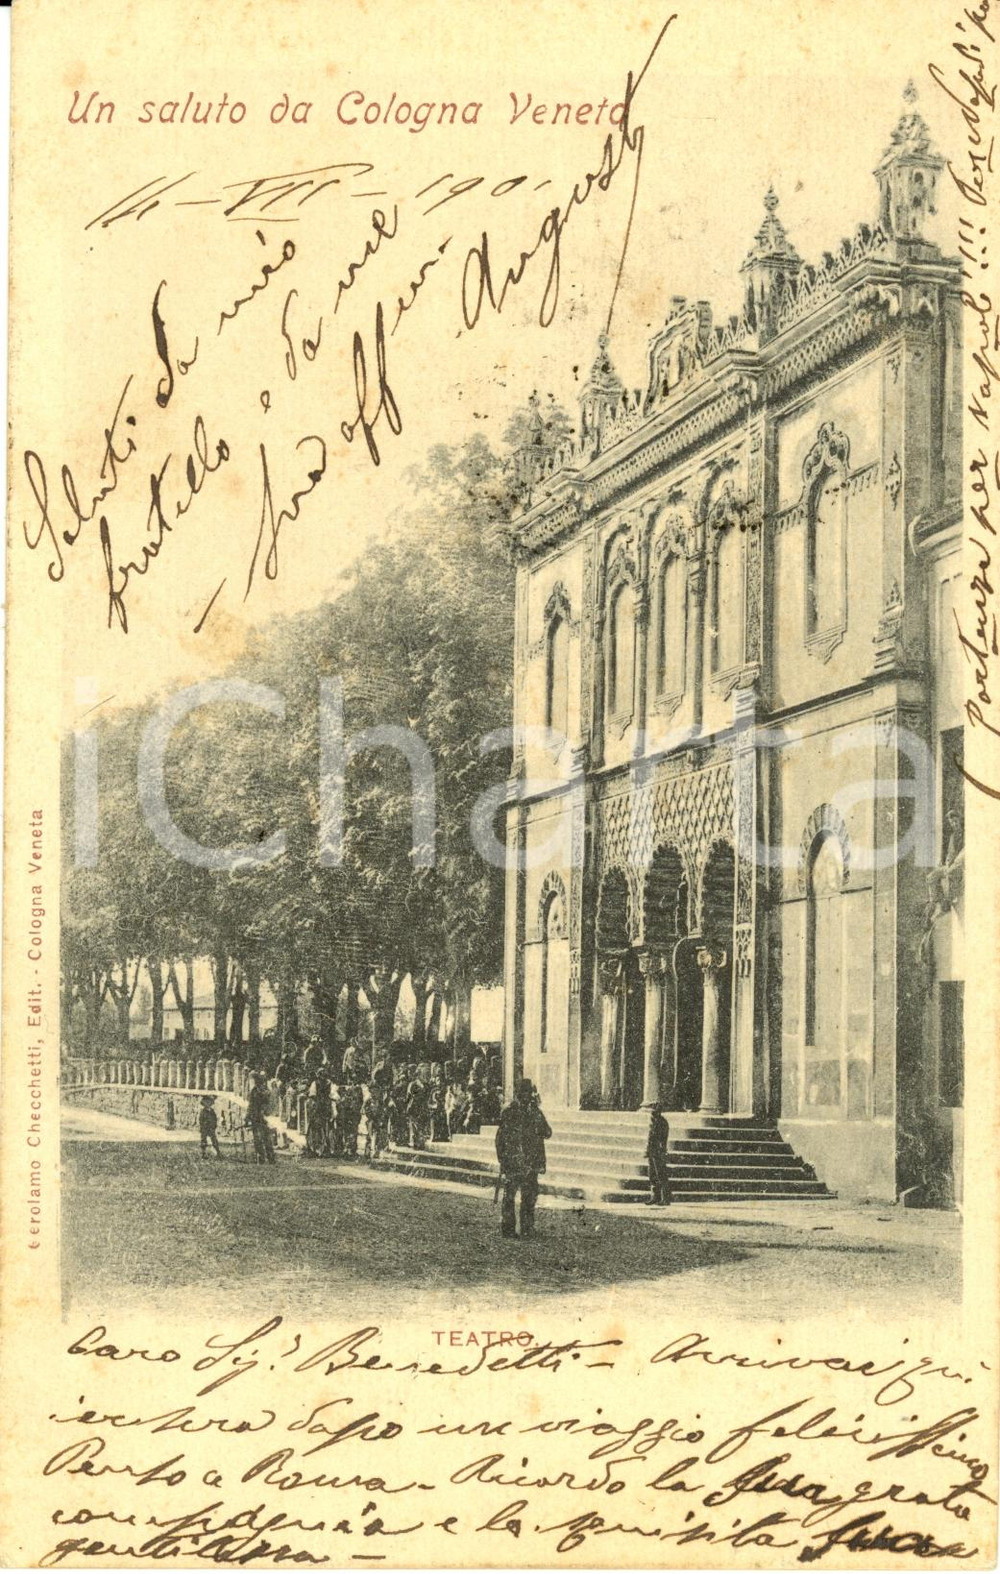 Un saluto da Cologna Veneta
14-VII-1901
Saluti da mio
fratello e da me
sua affma
August
Portenze per Napoli!!!
iCharta
Gerolamo Checchetti, Edit. - Cologna Veneta
TEATRO.
Caro Sig.r Benedetti - Arrivai qui
iersera dopo un viaggio felicissimo
Penso a Roma - Ricordo la sua grata
compagnia e la squisita sua
gentilezza -